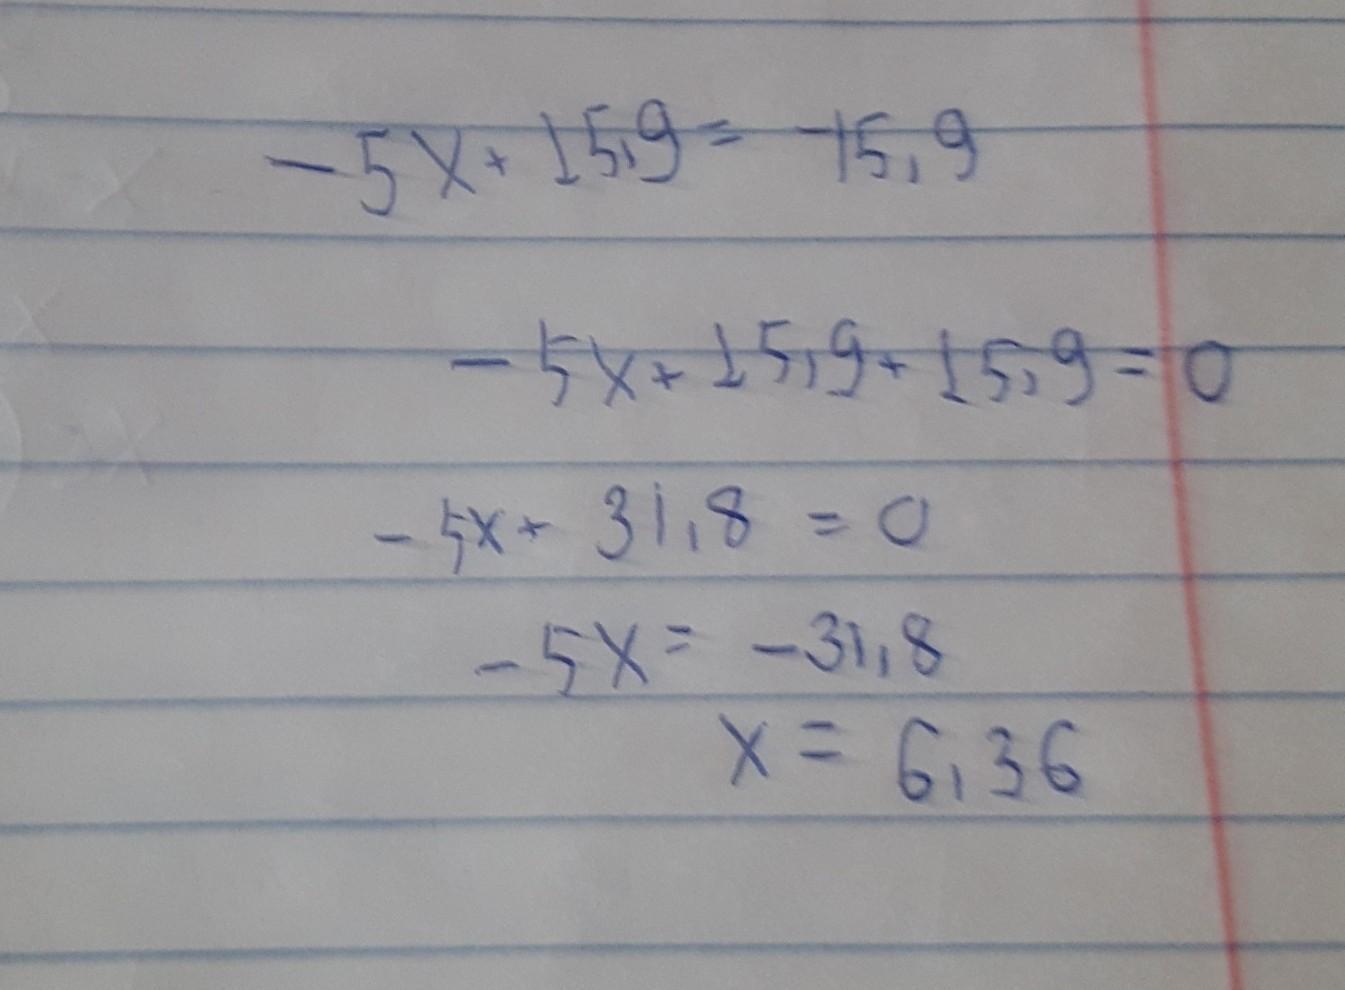 -5x+15,9= -15,9
-5x+15,9+15,9=0
-5x+ 31,8 = 0
-5x= -31,8
x= 6,36